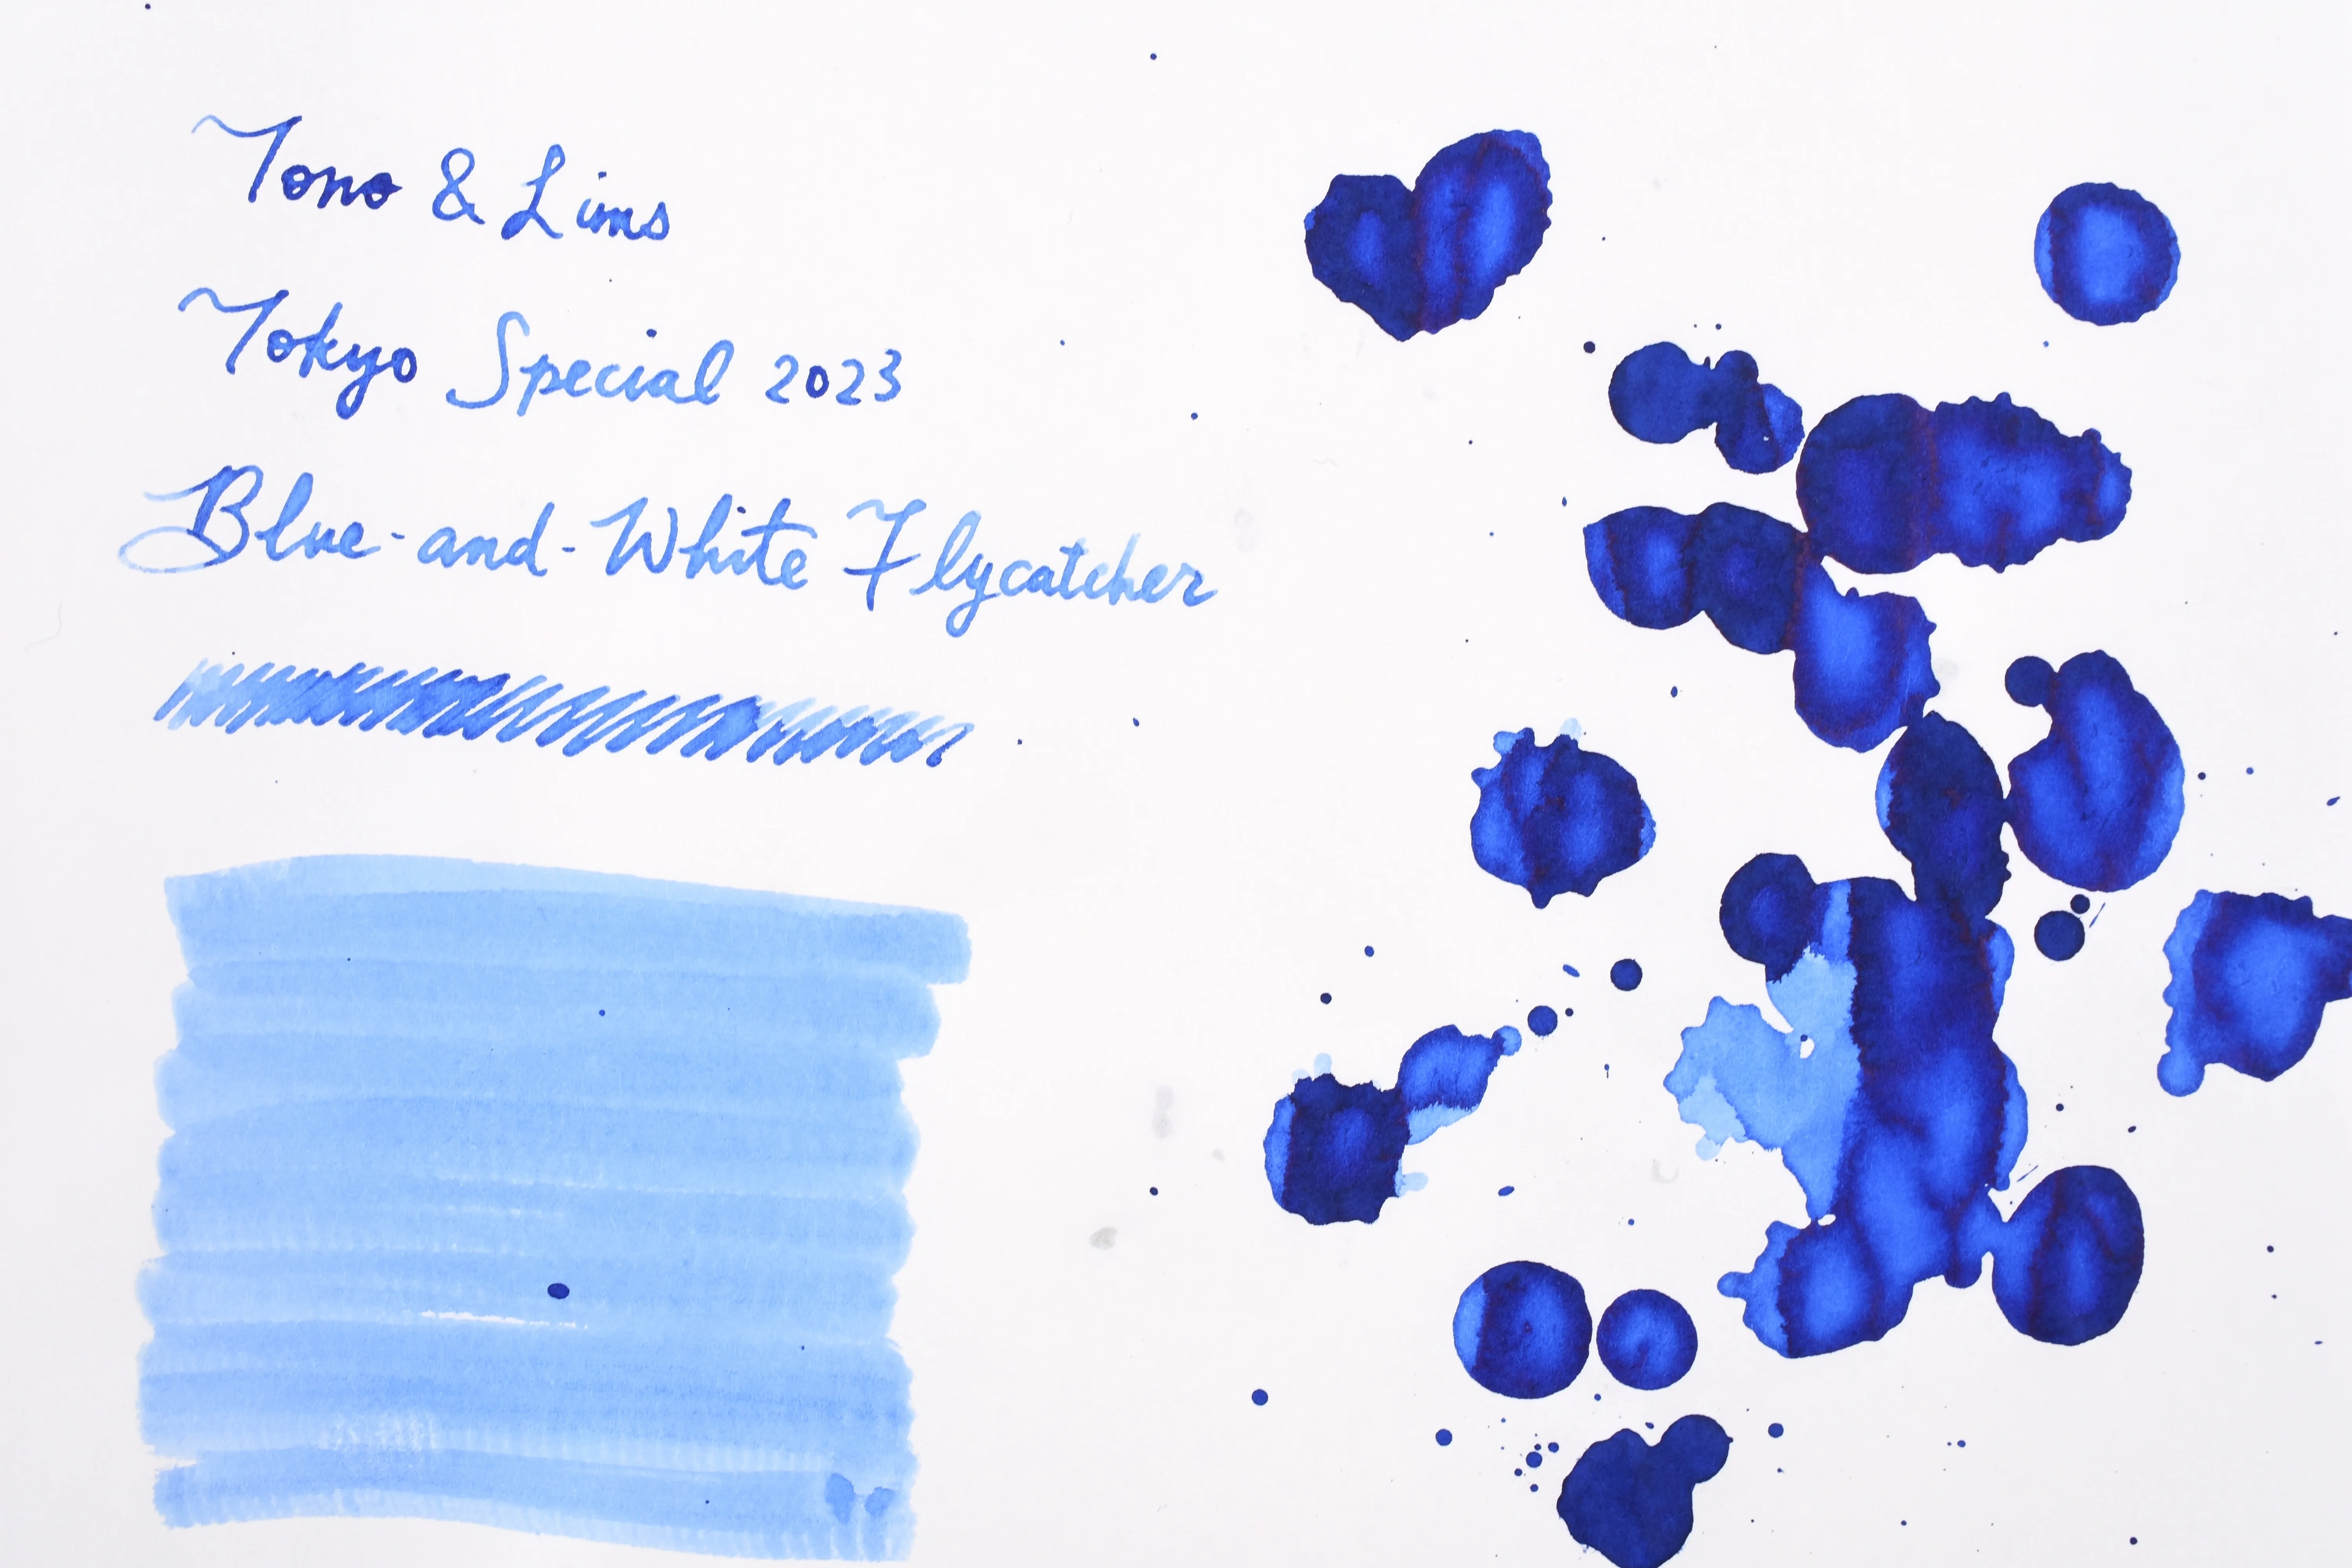 Tono & Lims
Tokyo Special 2023
Blue-and-White Flycatcher